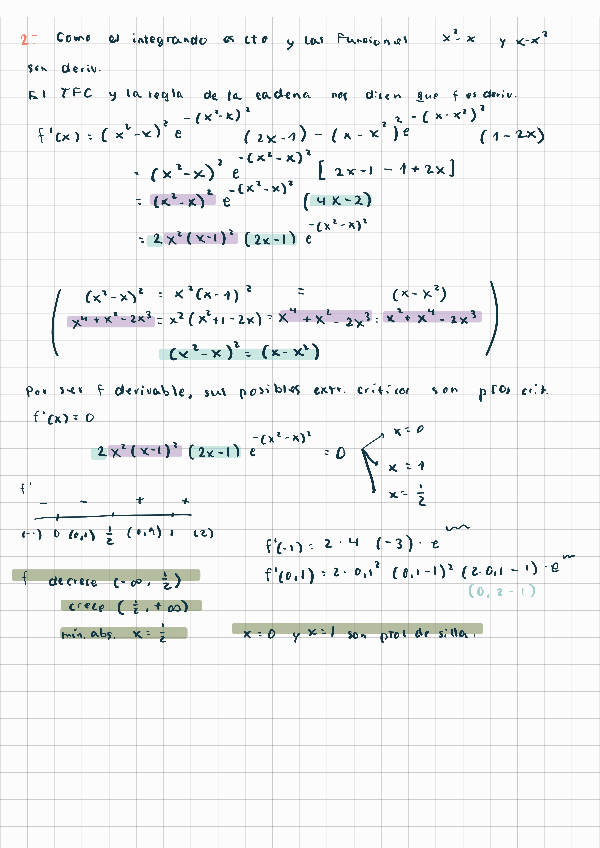 2- Como el integrando es cto y las funciones x²-x y x-x²
son deriv.
El TFC y la regla de la cadena nos dicen que f es deriv.
f'(x) = (x²-x)² e^-(x²-x)² (2x-1) - (x-x²)² e^-(x-x²)² (1-2x)
= (x²-x)² e^-(x²-x)² [2x-1-1+2x]
= (x²-x)² e^-(x²-x)² (4x-2)
= 2x²(x-1)² (2x-1) e^-(x²-x)²
(x²-x)² = x²(x-1)² = (x-x²)
x⁴+x²-2x³ = x²(x²+1-2x) = x⁴+x²-2x³ = x²+x⁴-2x³
(x²-x)² = (x-x²)
Por ser f derivable, sus posibles extr. críticos son ptos crít.
f'(x)=0
2x²(x-1)² (2x-1) e^-(x²-x)² = 0
x=0
x=1
x=1/2
f'
- - + +
(-1) 0 (0,1) 1/2 (0,9) 1 (2)
f'(-1) = 2·4 (-3)·e
f'(0,1) = 2·0,1² (0,1-1)² (2·0,1-1)·e
(0,2-1)
f decrece (-∞, 1/2)
crece (1/2, +∞)
mín. abs. x=1/2
x=0 y x=1 son ptol de silla.